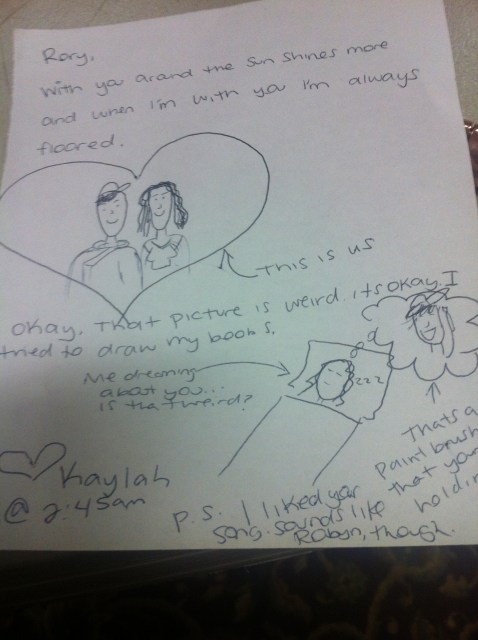 Rory,
With you around the sun shines more
and when I'm with you I'm always
floored.
This is us
okay. That picture is weird. its okay. I
tried to draw my boobs.
Me dreaming
about you...
is that weird?
zzz
Thats a
paint brush
that your
holdin
Kaylah
@ 2:45am
P.S. I liked your
song. sounds like
Robyn, though.